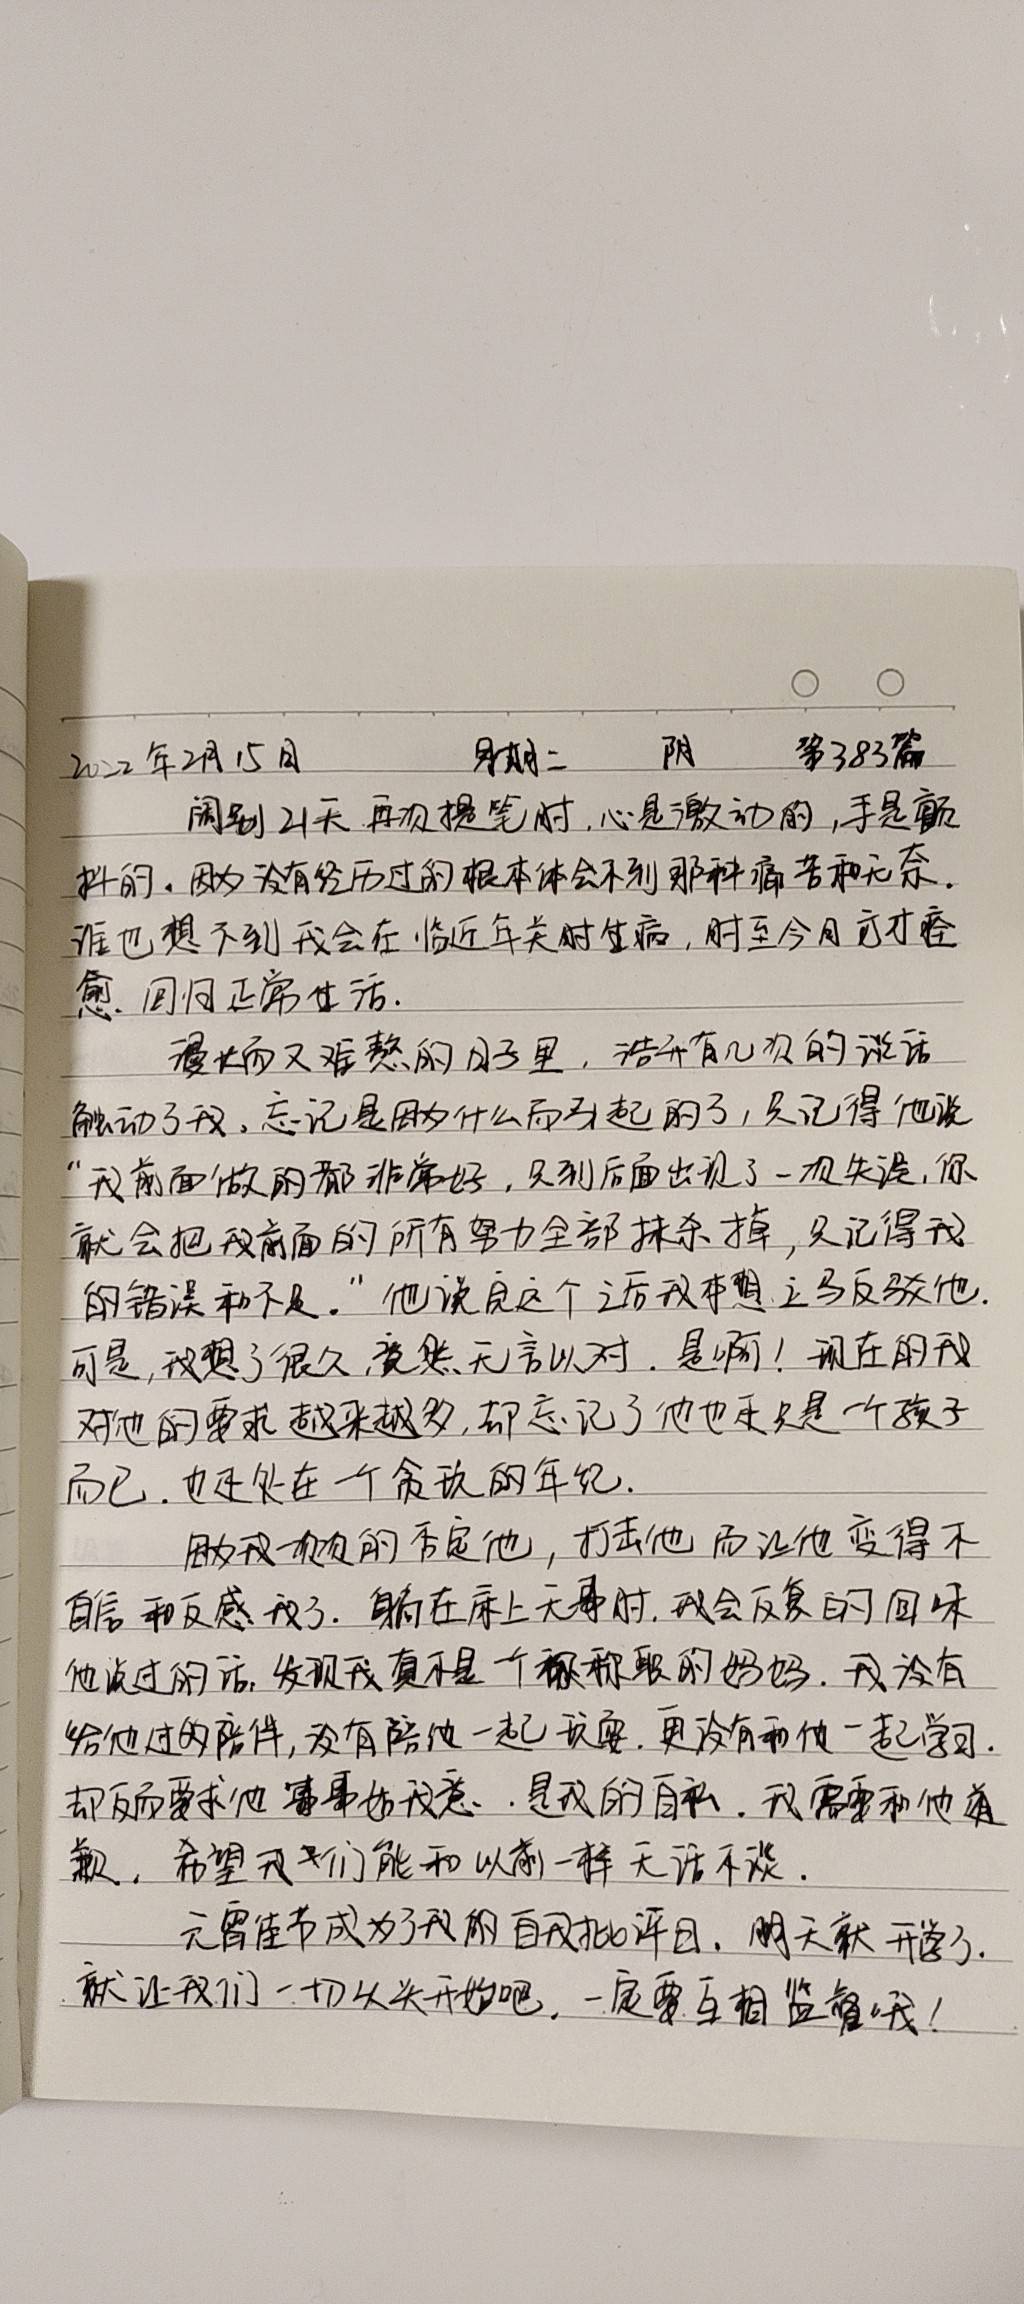 2022年2月15日 星期二 阴 第383篇
阔别21天再次提笔时,心是激动的,手是颤
抖的。因为没有经历过的根本体会不到那种痛苦和无奈.
谁也想不到我会在临近年关时生病,时至今日方才痊
愈.回归正常生活.
漫长而又难熬的日子里,浩开有几次的谈话
触动了我。忘记是因为什么而引起的了,只记得他说
“我前面做的都非常好,只到后面出现了一次失误,你
就会把我前面的所有努力全部抹杀掉,只记得我
的错误和不足。”他说完这个话我本想立马反驳他.
可是,我想了很久,竟然无言以对.是啊!现在的我
对他的要求越来越多,却忘记了他也还只是一个孩子
而已.也还处在一个贪玩的年纪.
因为我一次次的否定他,打击他而让他变得不
自信和反感我了.躺在床上无事时.我会反复的回味
他说过的话.发现我真不是一个称职的妈妈.我没有
给他过的陪伴,没有陪他一起玩耍.更没有和他一起学习.
却反而要求他事事如我意.是我的自私.我需要和他道
歉.希望我们能和以前一样无话不谈.
元宵佳节成为了我的自我批评日.明天就开学了.
就让我们一切从头开始吧.一定要互相监督哦!